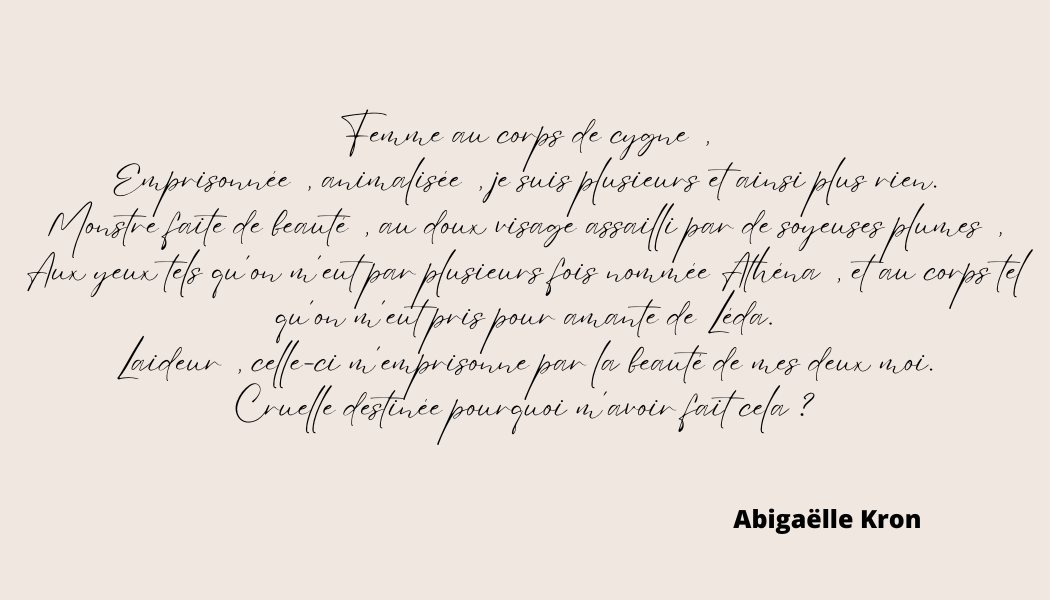 Femme au corps de cygne ,
Emprisonnée , animalisée , je suis plusieurs et ainsi plus rien.
Monstre faite de beauté , au doux visage assailli par de soyeuses plumes ,
Aux yeux tels qu'on m'eut par plusieurs fois nommée Athéna , et au corps tel
qu'on m'eut pris pour amante de Léda.
Laideur , celle-ci m'emprisonne par la beauté de mes deux moi.
Cruelle destinée pourquoi m'avoir fait cela ?
Abigaëlle Kron